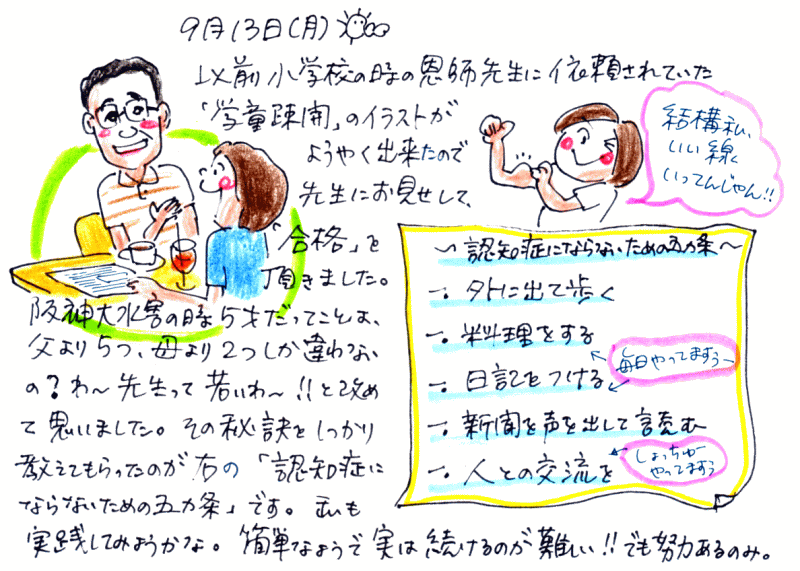 9月13日(月)
以前小学校の時の恩師先生に依頼されていた
「学童疎開」のイラストが
ようやく出来たので
先生にお見せして、
「合格」を
頂きました。
阪神大水害の時5才だってことは、
父より5つ、母より2つしか違わない
の?わ〜先生って若いわ〜!!と改め
て思いました。その秘訣をしっかり
教えてもらったのが右の「認知症に
ならないための五カ条」です。私も
実践してみようかな。簡単なようで実は続けるのが難しい!!でも努力あるのみ。
結構私、
いい線
いってんじゃん!!
〜認知症にならないための五カ条〜
一. 外に出て歩く
一. 料理をする
一. 日記をつける
毎日やってますぅ〜
一. 新聞を声を出して読む
一. 人との交流を
しょっちゅー
やってますぅ